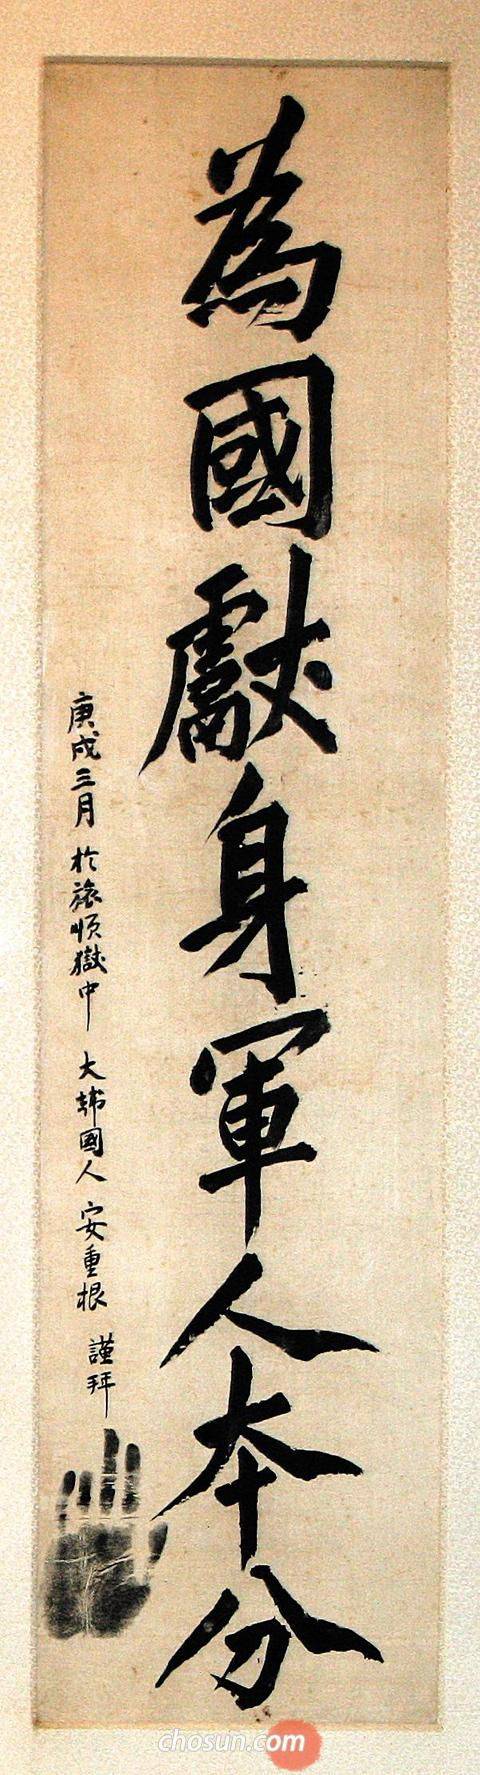 為國獻身軍人本分
庚戌三月 於旅順獄中 大韓國人 安重根 謹拜
chosun.com